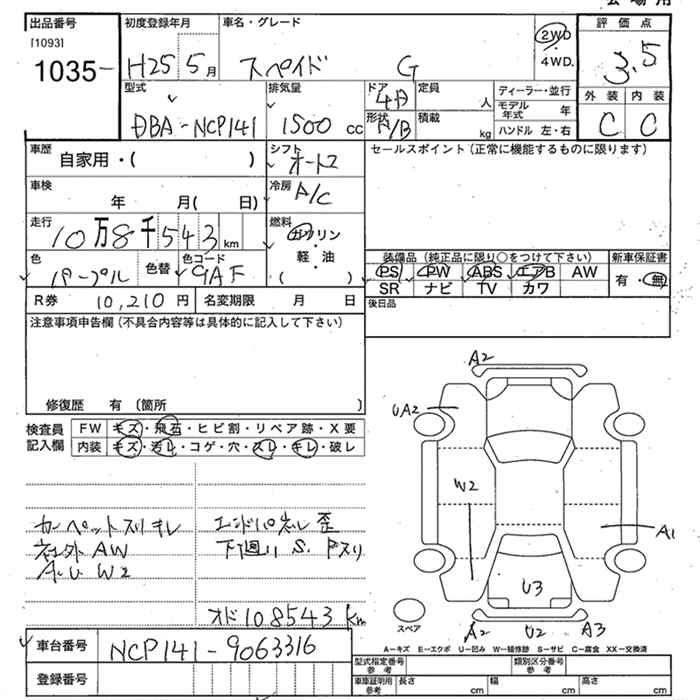 会場用
出品番号 初度登録年月 車名・グレード 2WD 評価点
[1093]
1035- H25 5月 スペイド G ・ 4WD. 3.5
型式 排気量 ドア 4D 定員 人 ディーラー・並行 外装 内装
モデル年式 年
DBA-NCP141 1500 cc 形状 H/B 積載 kg ハンドル 左・右 C C
車歴 自家用・( ) シフト オートマ セールスポイント(正常に機能するものに限ります)
車検 年 月( 日) 冷房 A/C
走行 10万8千543km 燃料 ガソリン・軽・油 ( )
色 パープル 色替 色コード 9AF
装備品(純正品に限り○をつけて下さい) 新車保証書
PS PW ABS エアB AW 有・無
SR ナビ TV カワ
R券 10,210円 名変期限 月 日 後日品
注意事項申告欄(不具合内容等は具体的に記入して下さい)
修復歴 有 (箇所 )
検査員記入欄 FW キズ・飛石・ヒビ割・リペア跡・X要
内装 キズ・汚レ・コゲ・穴・スレ・キレ・破レ
カーペットスリキレ
社外AW
A.U W2
下廻りS.
オド108543km
A2
UA2
W2
A1
U3
スペア
A2 U2 A3
A-キズ E-エクボ U-凹み W-補修跡 S-サビ C-腐食 XX-交換済
車台番号 NCP141-9063316
登録番号
型式指定番号 参考 類別区分番号 参考
車庫証明用 参考 長さ cm 幅 cm 高さ cm